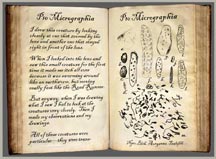 Pro Micrographia
I drew this creature by looking
closely at one that normally by the
lens and another one that stayed
right in front of the lens.
When I looked into the lens and
saw this small creature for the first
time it made me itch all over
because it was squirming around
like an earthworm, but moving
really fast like the Road Runner.
But anyway, when I was drawing
what I saw I had to look at the
creatures very closely. Then I
made my observations and my
drawings.
All of these creatures were
particular - they were
Pro Micrographia